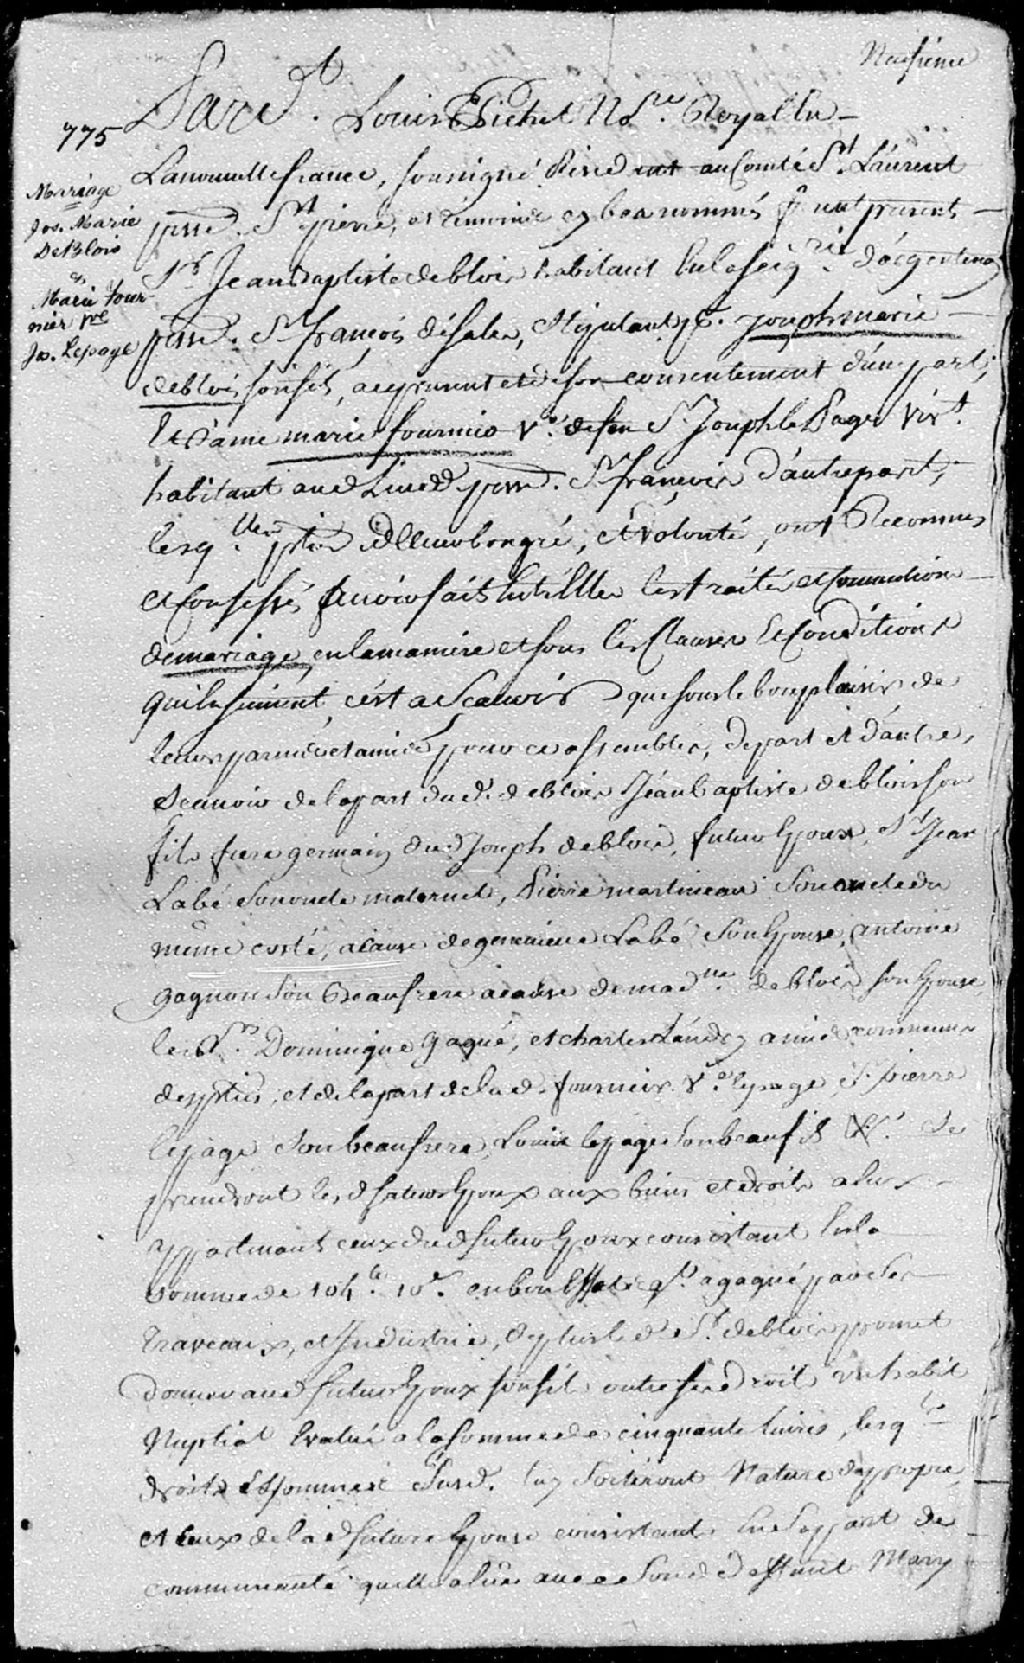 Neufieme
Pard.t Louis Pichet N.re Royal En
775
Mariage
Jos. Marie
DeBlois
&
Marie Four
nier v.ve
Jos. Lepage
Lanouvelle france, soussigné Resid ant au Comté S.t Laurent
pssé. S.t pierre, et témoins cy bas nommés furent presents
S.r Jean Baptiste deblois habitant En la seig.rie d'argentenay
pssé. S.t françois désales, stipulant p.r joseph marie
deblois son fils, acepresent et de son consentement d'une part;
Et dame marie fournier V.e de feu S.r Joseph le Page viv.t
habitant aud Lieu pssé. S.t françois d'autre part,
lesq.lles pties de leur bongré, & volonté, ont Reconnus
et confessés avoir fait Entre Elles les traités et conventions
de mariage, en la maniere et sous les Clauses Et Conditions
quils suivent, c'est a Scavoir que sous le bon plaisir de
leurs parents et amis pour ce assemblés, de part et d'autre,
Scavoir de la part dud. deblois Jean baptiste deblois son
fils frere germain dud Joseph deblois, futur Epoux, S.r Jean
Labé son oncle maternel, Pierre martineau son oncle du
meme costé, acause de genevieve Labé Son Epouse, antoine
gagnon son Beaufrere acause de mad.ne deblois son Epouse,
les S.rs Dominique gagné, et charles Landry amis communs
des pties, et de la part de lad. fournier V.e lepage, S.r pierre
lepage Son beaufrere, Louis lepage son beaufils &c. Se
prendront lesd futurs Epoux aux biens et droits a Eux
appartenants ceux dud futur Epoux consistant En la
Somme de 104.tt 10.s en bons Effets q.l a gagné par Ses
travaux, et Industrie, deplus led S.r deblois promet
donner aud futur Epoux son fils outre ses droits un habit
Nuptial Evalué a la Somme de cinquante livres, lesq.ls
droits et sommes Susd. luy Sortiront Nature de propre,
et ceux de lad future Epouse consistant En Sa part de
communauté quelle a Eue avec Son d deffunt Mary